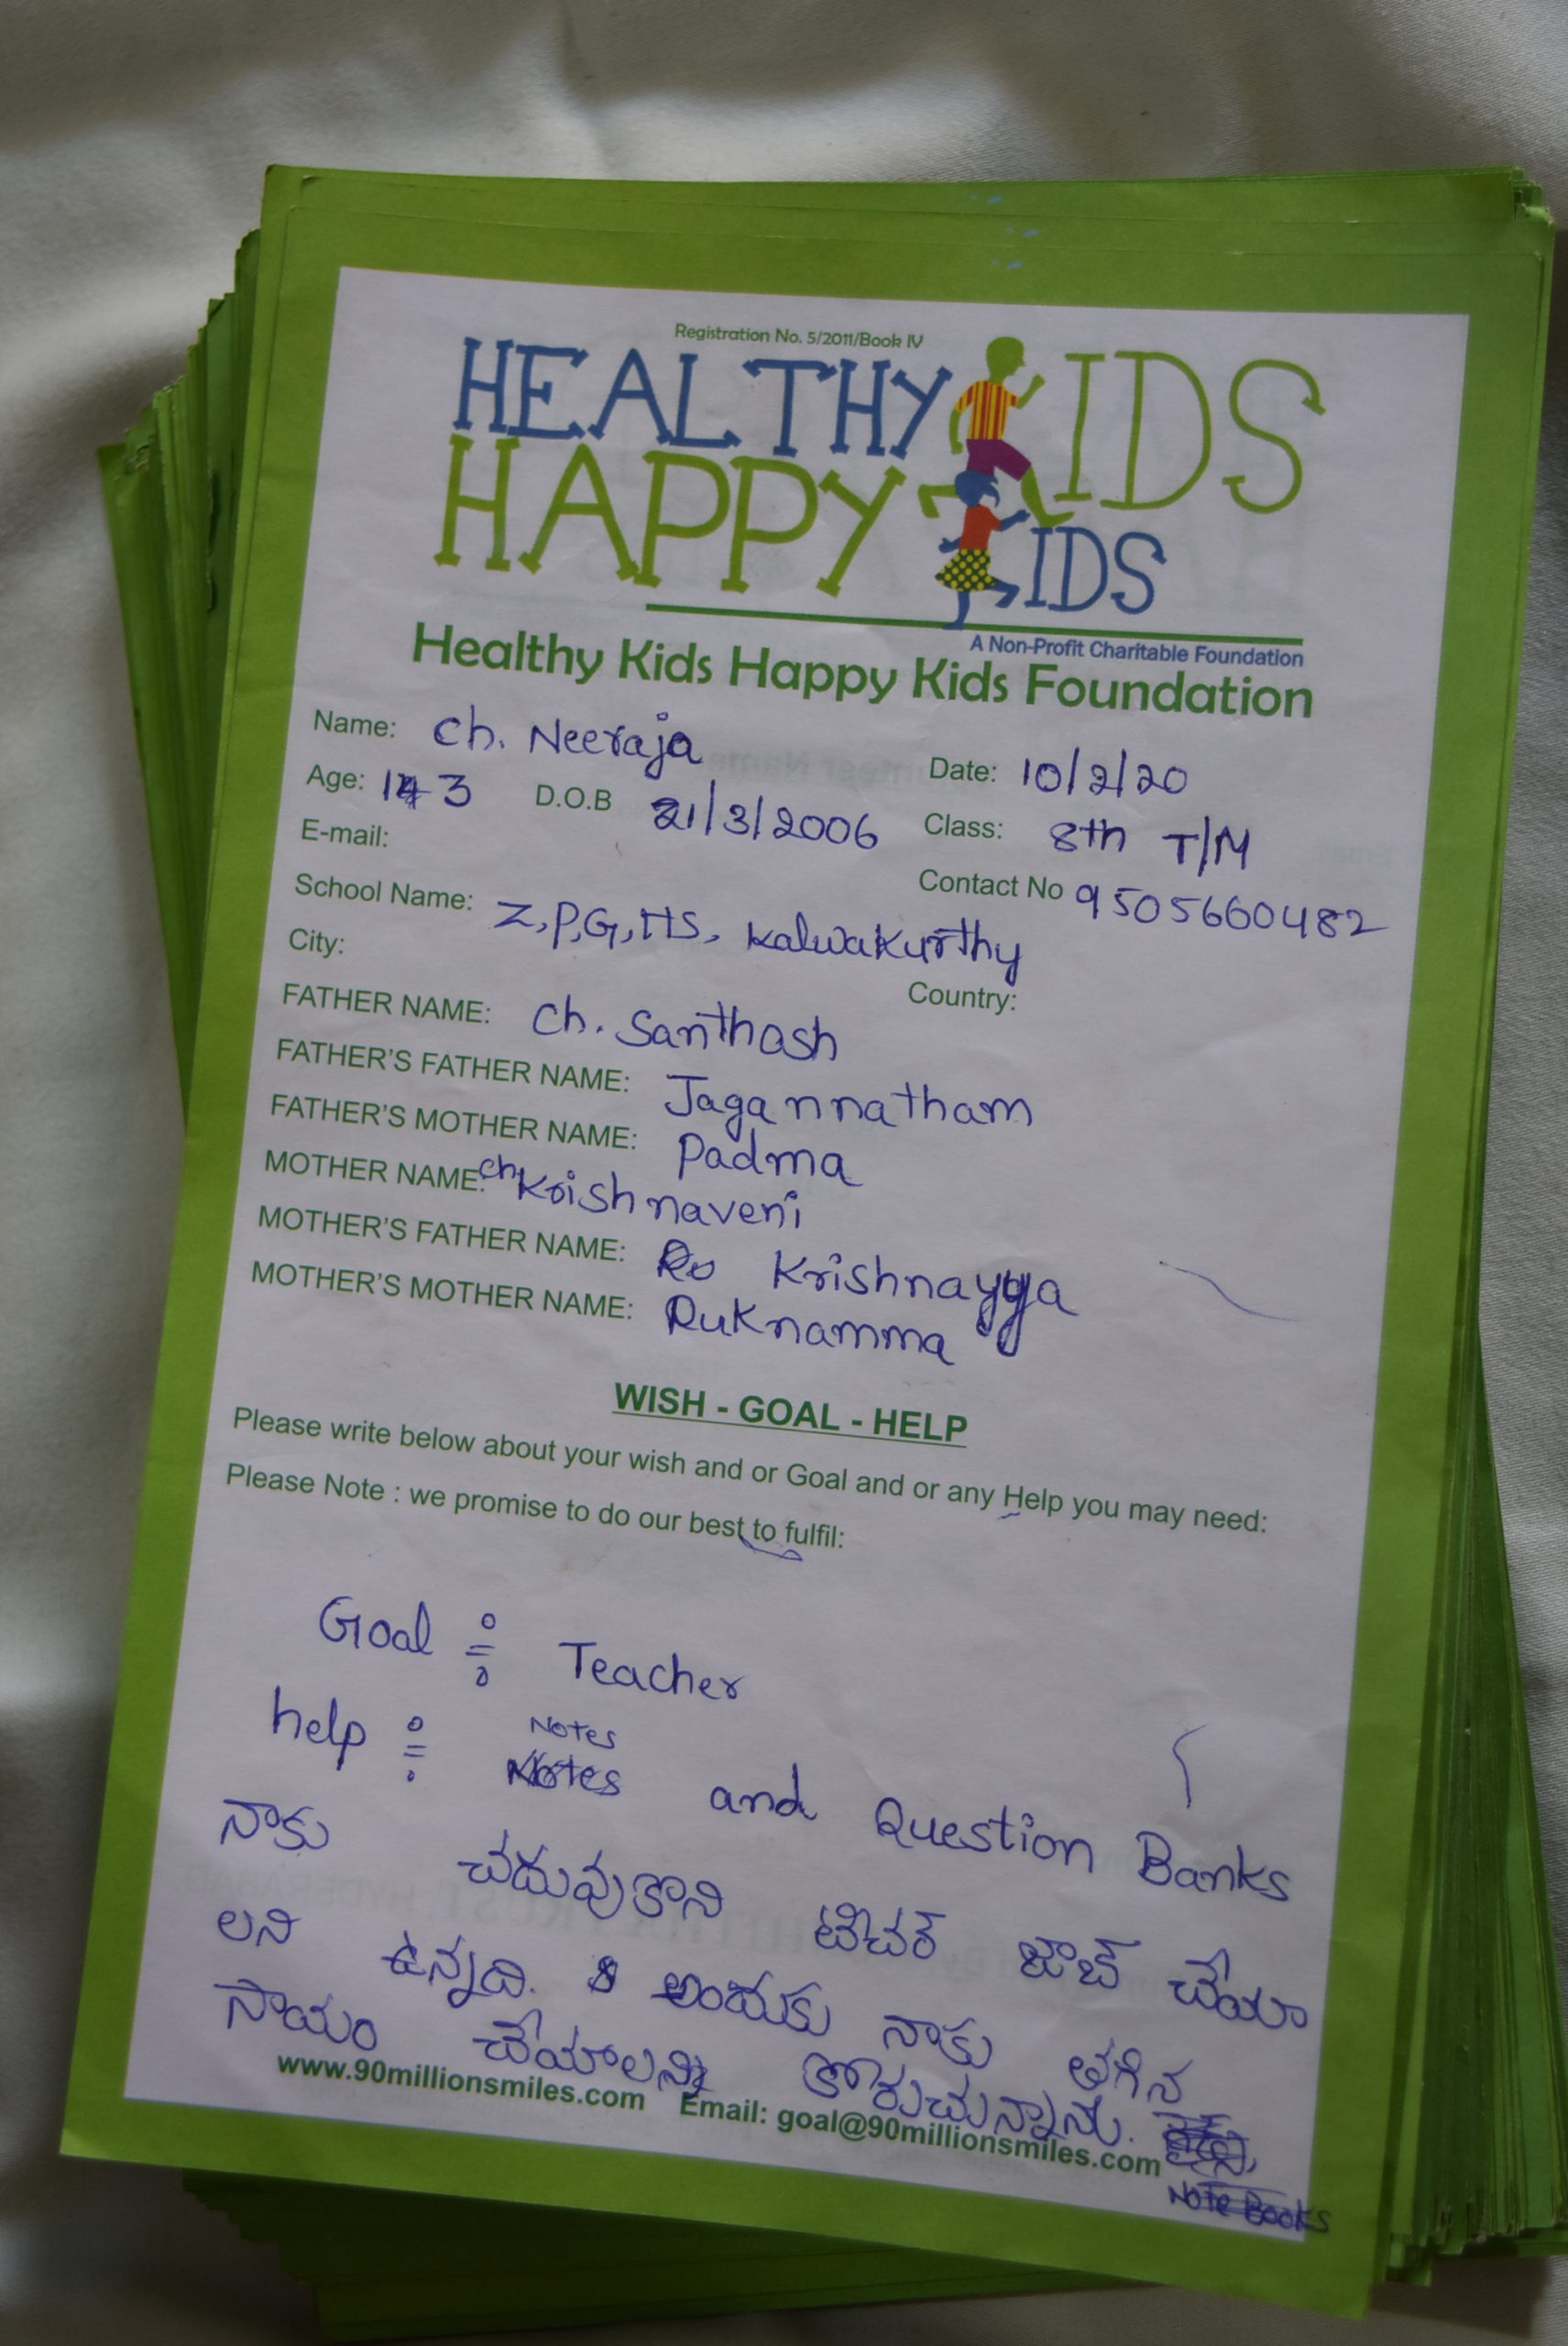 Registration No. 5/2011/Book IV
HEALTHY KIDS
HAPPY KIDS
A Non-Profit Charitable Foundation
Healthy Kids Happy Kids Foundation
Name: Ch. Neeraja
Date: 10/2/20
Age: 13 D.O.B 21/3/2006 Class: 8th T/M
E-mail:
Contact No 9505660482
School Name: Z,P,G,HS, Kalwakurthy
City:
Country:
FATHER NAME: Ch. Santhosh
FATHER'S FATHER NAME: Jagannatham
FATHER'S MOTHER NAME: Padma
MOTHER NAME: Ch Krishnaveni
MOTHER'S FATHER NAME: Krishnayya
MOTHER'S MOTHER NAME: Ruknamma
WISH - GOAL - HELP
Please write below about your wish and or Goal and or any Help you may need:
Please Note : we promise to do our best to fulfil:
Goal : Teacher
Notes
help : Notes and Question Banks
నాకు చదువుకొని టీచర్ జాబ్ చేయా
లని ఉన్నది. అందుకు నాకు తగిన
సాయం చేయాలని కోరుచున్నాను.
Note Books
www.90millionsmiles.com Email: goal@90millionsmiles.com